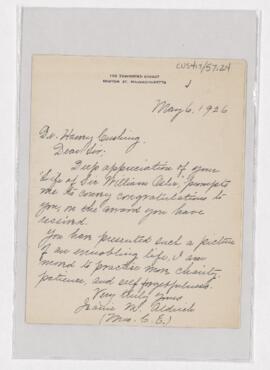 CUS417/57.24
May 6, 1926
Dr. Harvey Cushing,
Dear Sir;
Deep appreciation of your
"Life of Sir William Osler," prompts
me to convey congratulations to
you, on the award you have
received.
You have presented such a picture
of an ennobling life, I am
moved to practise more charity,
patience, and self forgetfulness.
Very truly yours
M. Aldrich
(Mrs. C. E.)